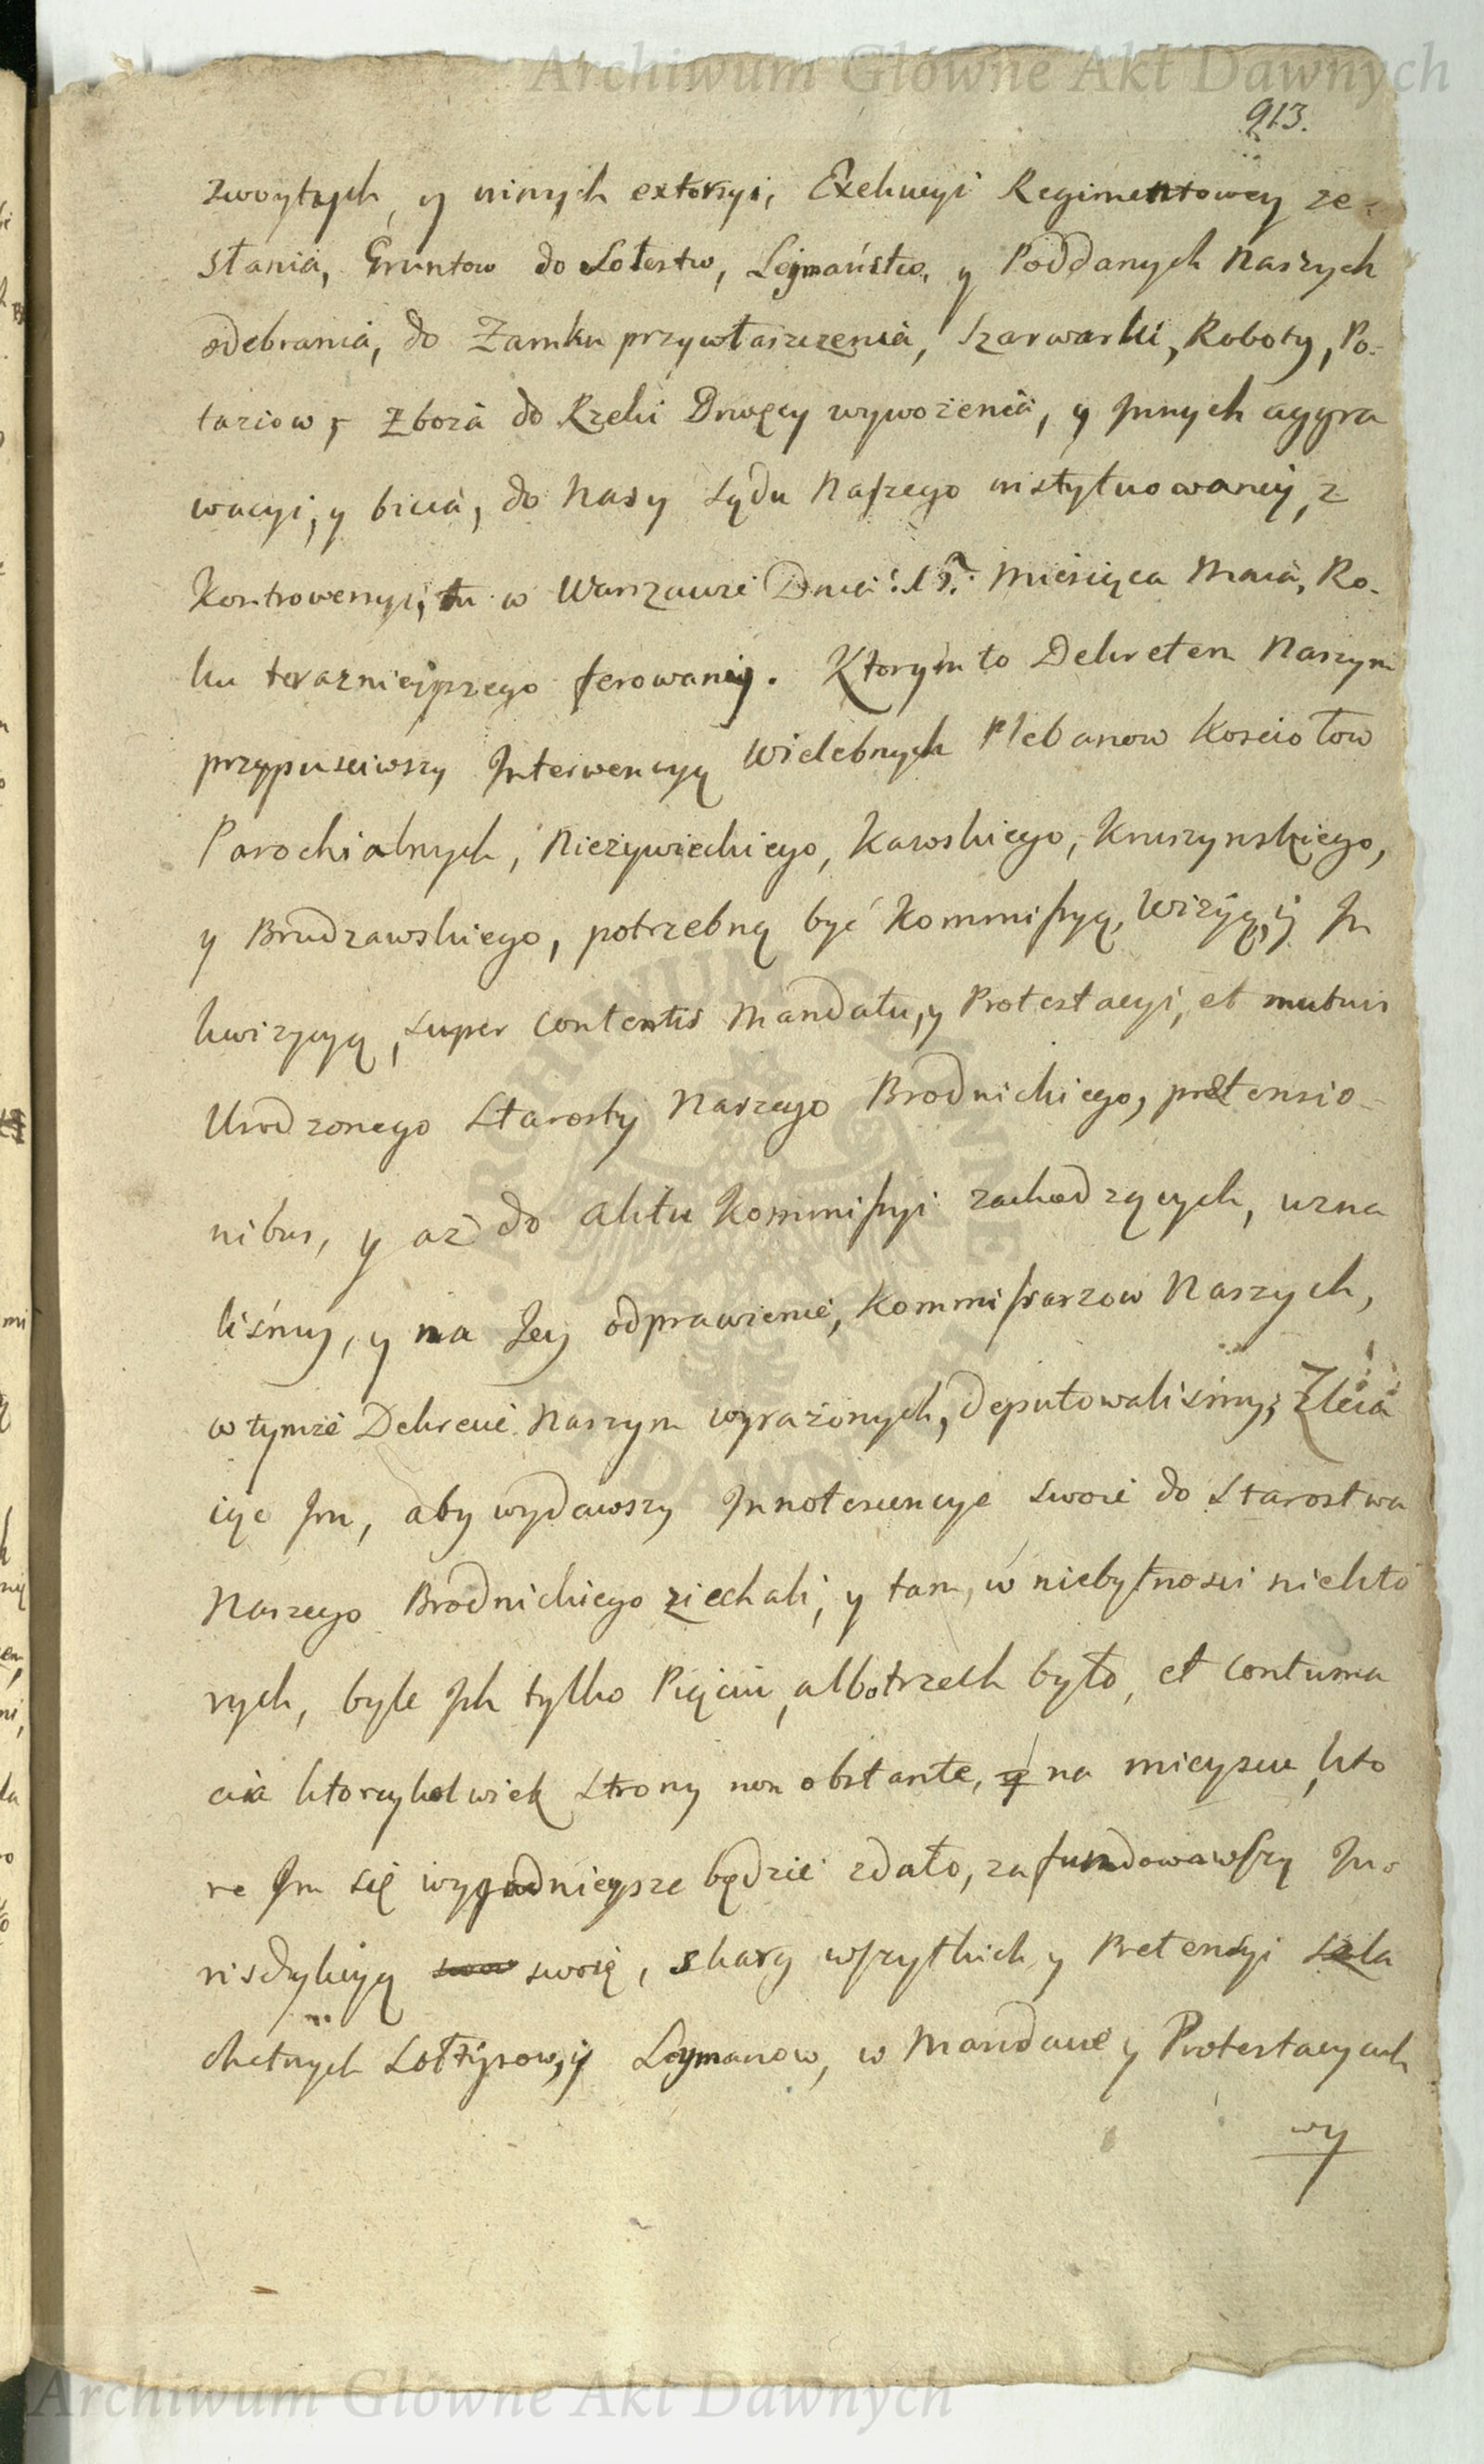 Archiwum Główne Akt Dawnych
913.
zwoytych, y ninych extorsyi, Exekucyi Regimentowey ze-
słania, Gruntow do Sołestw, Lejmaństw, y Poddanych Naszych
odebrania, do Zamku przywłaszczenia, Szarwarki, Roboty, Po-
taziow, Zboża do Rzeki Drwęcy wywożenia, y Innych aggra
wacyi, y bicia, do Nasy Sądu Naszego instytuowaney, z
Kontrowersyi, tu w Warszawie Dnia Miesiąca Maia, Ro-
ku teraznieyszego ferowany. Ktorym to Dekretem Naszym
przypusciwszy Interwencyą Wielebnych Plebanow Kosciołow
Parochialnych, Nieżywieckiego, Kawskiego, Kruszynskiego,
y Brudzawskiego, potrzebną być Kommissyą, Wizyą, y In
kwizycyą, super contentis Mandatu, y Protestacyi, et mutuis
Urodzonego Starosty Naszego Brodnickiego, prætensio-
nibus, y aż do aktu Kommissyi zachodzących, uzna
liśmy, y na Jey odprawienie, Kommissarzow Naszych,
w tymże Dekrecie Naszym wyrażonych, deputowaliśmy; Zleca
iąc Im, aby wydawszy Innotescencye swoie do Starostwa
Naszego Brodnickiego ziechali, y tam, w niebytnosci niekto
rych, byle Ich tylko Pięciu, albo trzech było, et contuma
cia ktoreykolwiek Strony non obstante, y na mieyscu, kto
re Im się wygodnieysze będzie zdało, zafundowawszy Ju-
risdykcyą swoię, skarg wszytkich y Pretensyi szla
chetnych Sołtysow, y Leymanow, w Mandacie y Protestacyach
wy
Archiwum Główne Akt Dawnych